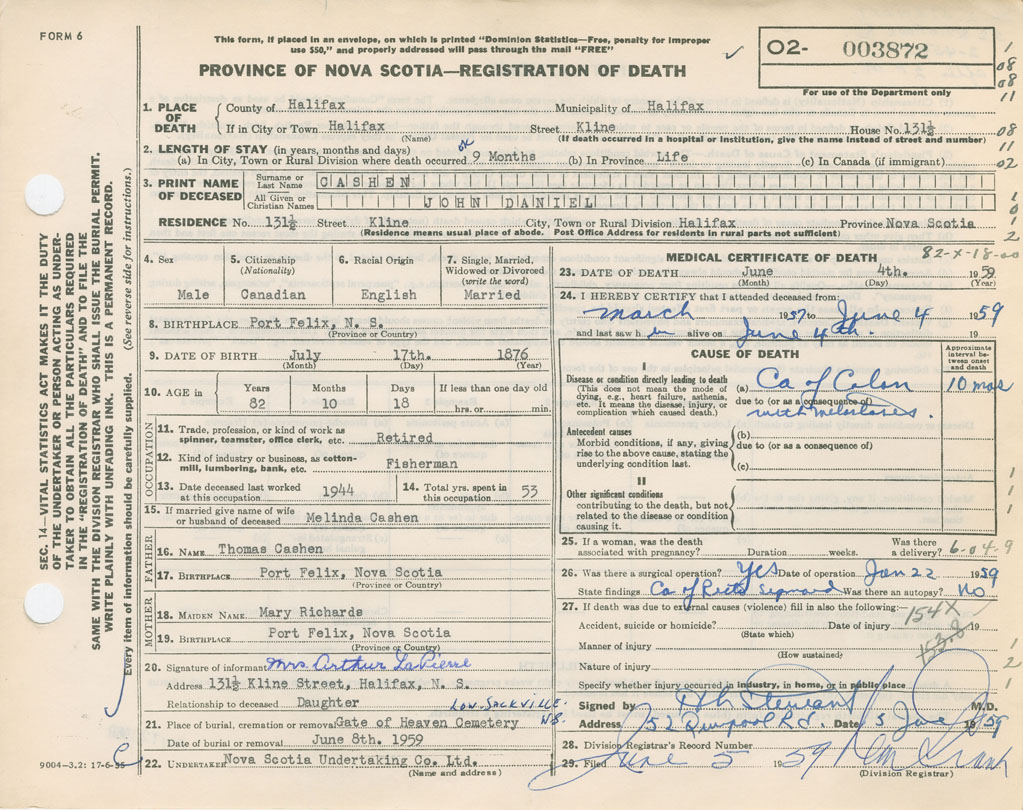 FORM 6
This form, if placed in an envelope, on which is printed "Dominion Statistics—Free, penalty for improper
use $50," and properly addressed will pass through the mail "FREE"
PROVINCE OF NOVA SCOTIA—REGISTRATION OF DEATH
✓
02- 003872
For use of the Department only
1
08
08
11
SEC. 14—VITAL STATISTICS ACT MAKES IT THE DUTY
OF THE UNDERTAKER OR PERSON ACTING AS UNDER-
TAKER TO OBTAIN ALL THE PARTICULARS REQUIRED
IN THE "REGISTRATION OF DEATH" AND TO FILE THE
SAME WITH THE DIVISION REGISTRAR WHO SHALL ISSUE THE BURIAL PERMIT.
WRITE PLAINLY WITH UNFADING INK. THIS IS A PERMANENT RECORD.
Every item of information should be carefully supplied. (See reverse side for instructions.)
1. PLACE OF DEATH County of Halifax Municipality of Halifax
If in City or Town Halifax Street Kline House No. 131½ 08
(Name) (If death occurred in a hospital or institution, give the name instead of street and number)
11
2. LENGTH OF STAY (in years, months and days)
(a) In City, Town or Rural Division where death occurred 9 Months (b) In Province Life (c) In Canada (if immigrant) 02
3. PRINT NAME OF DECEASED
Surname or Last Name CASHEN
All Given or Christian Names JOHN DANIEL
1
0
1
2
RESIDENCE No. 131½ Street Kline City, Town or Rural Division Halifax Province Nova Scotia
(Residence means usual place of abode. Post Office Address for residents in rural parts not sufficient)
4. Sex Male
5. Citizenship (Nationality) Canadian
6. Racial Origin English
7. Single, Married, Widowed or Divorced (write the word) Married
8. BIRTHPLACE Port Felix, N. S.
(Province or Country)
9. DATE OF BIRTH July 17th. 1876
(Month) (Day) (Year)
10. AGE in Years 82 Months 10 Days 18 If less than one day old hrs. or min.
OCCUPATION
11. Trade, profession, or kind of work as spinner, teamster, office clerk, etc. Retired
12. Kind of industry or business, as cotton-mill, lumbering, bank, etc. Fisherman
13. Date deceased last worked at this occupation 1944
14. Total yrs. spent in this occupation 53
15. If married give name of wife or husband of deceased Melinda Cashen
FATHER
16. Name Thomas Cashen
17. Birthplace Port Felix, Nova Scotia
(Province or Country)
MOTHER
18. Maiden Name Mary Richards
19. Birthplace Port Felix, Nova Scotia
(Province or Country)
20. Signature of informant Mrs. Arthur LaPierre
Address 131½ Kline Street, Halifax, N. S.
Relationship to deceased Daughter
Low. Sackville
21. Place of burial, cremation or removal Gate of Heaven Cemetery
Date of burial or removal June 8th. 1959
22. Undertaker Nova Scotia Undertaking Co. Ltd.
(Name and address)
9004—3.2: 17-6-55
MEDICAL CERTIFICATE OF DEATH 82-X-18-00
23. DATE OF DEATH June 4th. 1959
(Month) (Day) (Year)
24. I HEREBY CERTIFY that I attended deceased from:
March 1957 to June 4 1959
and last saw h im alive on June 4th. 19
CAUSE OF DEATH
Approximate interval between onset and death
I
Disease or condition directly leading to death
(This does not mean the mode of dying, e.g., heart failure, asthenia, etc. It means the disease, injury, or complication which caused death.)
(a) Ca of Colon 10 mos
due to (or as a consequence of)
with metastases.
Antecedent causes
Morbid conditions, if any, giving rise to the above cause, stating the underlying condition last.
(b)
due to (or as a consequence of)
(c)
II
Other significant conditions
contributing to the death, but not related to the disease or condition causing it.
1
1
1
25. If a woman, was the death associated with pregnancy? Duration weeks. Was there a delivery? 6-04-9
26. Was there a surgical operation? Yes Date of operation Jan 22 1959
State findings Ca of Recto Sigmoid Was there an autopsy? No
27. If death was due to external causes (violence) fill in also the following:
154X
Accident, suicide or homicide? Date of injury 19
(State which)
153.8
Manner of injury
(How sustained)
1
Nature of injury
2
Specify whether injury occurred in industry, in home, or in public place
1
Signed by M.D.
Address 52 Quinpool Rd. Date 5 June 1959
28. Division Registrar's Record Number
29. Filed June 5 1959
(Division Registrar)